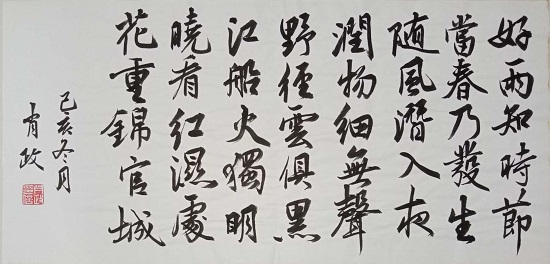 好雨知時節
當春乃發生
随風潛入夜
潤物細無聲
野徑雲俱黑
江船火獨明
曉看紅濕處
花重錦官城
己亥冬月
肖政